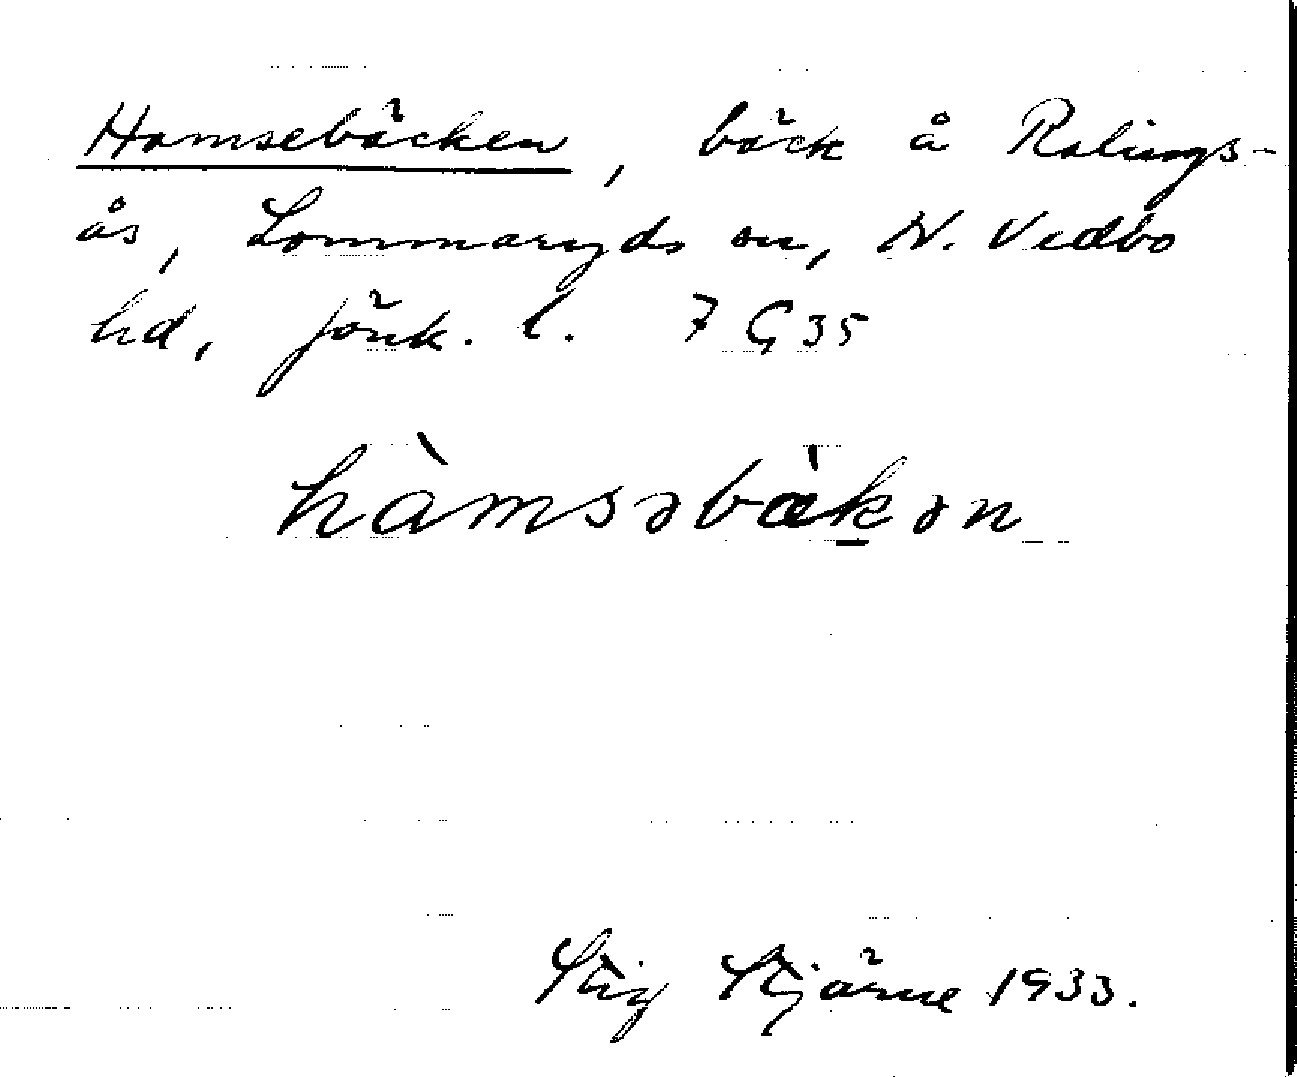 Hamsebäcken, bäck å Ralings-
ås, Lommaryds sn, N. Vedbo
hd, Jönk. l. 7 G 35
hàmsəbæ̀kən
Stig Stjärne 1933.